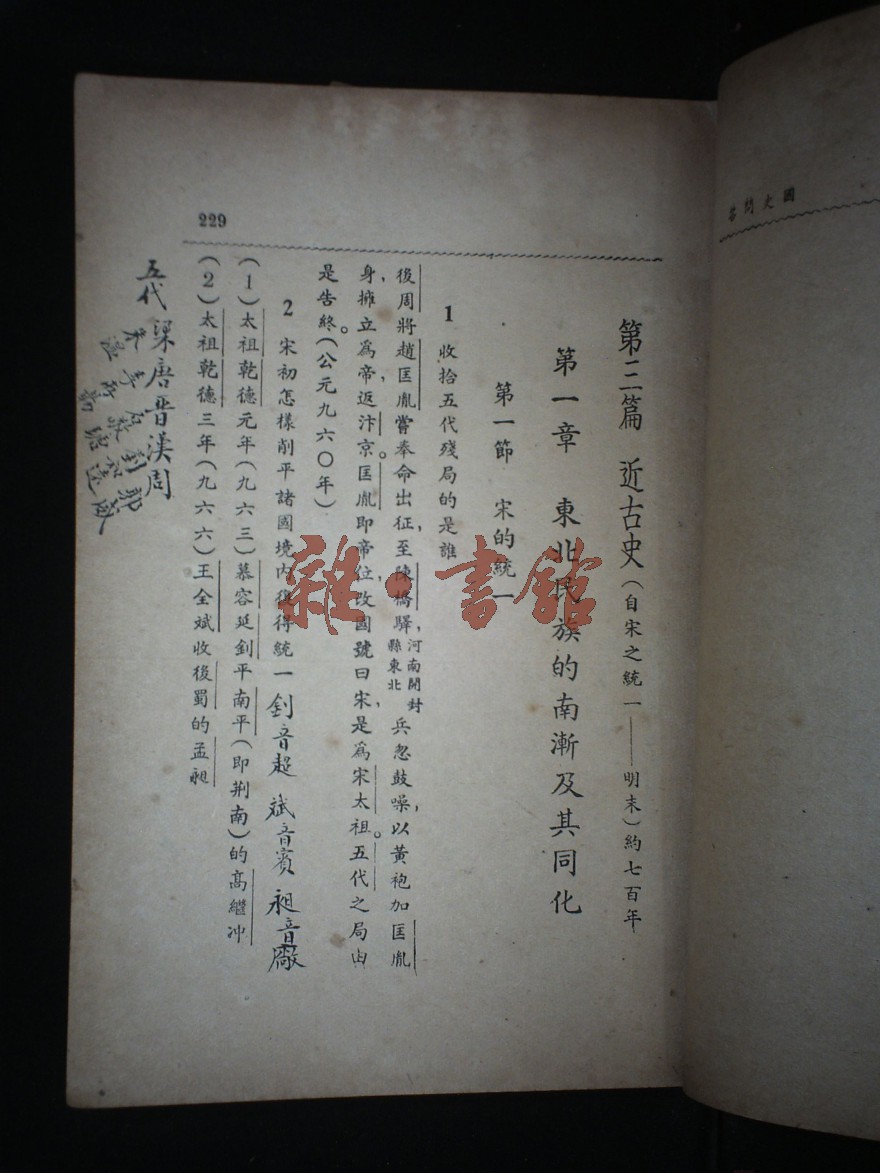 國史問答
第三篇 近古史(自宋之統一——明末)約七百年
第一章 東北民族的南漸及其同化
第一節 宋的統一
1 收拾五代殘局的是誰
後周將趙匡胤嘗奉命出征,至陳橋驛,河南開封縣東北兵忽鼓噪,以黃袍加匡胤
身,擁立爲帝,返汴京。匡胤即帝位,改國號曰宋,是爲宋太祖。五代之局由
是告終。(公元九六〇年)
2 宋初怎樣削平諸國境內復得統一
釗音超 斌音賓 昶音厰
(1)太祖乾德元年(九六三)慕容延釗平南平(即荆南)的高繼冲
(2)太祖乾德三年(九六六)王全斌收後蜀的孟昶
五代 梁唐晉漢周
229
雜·書館